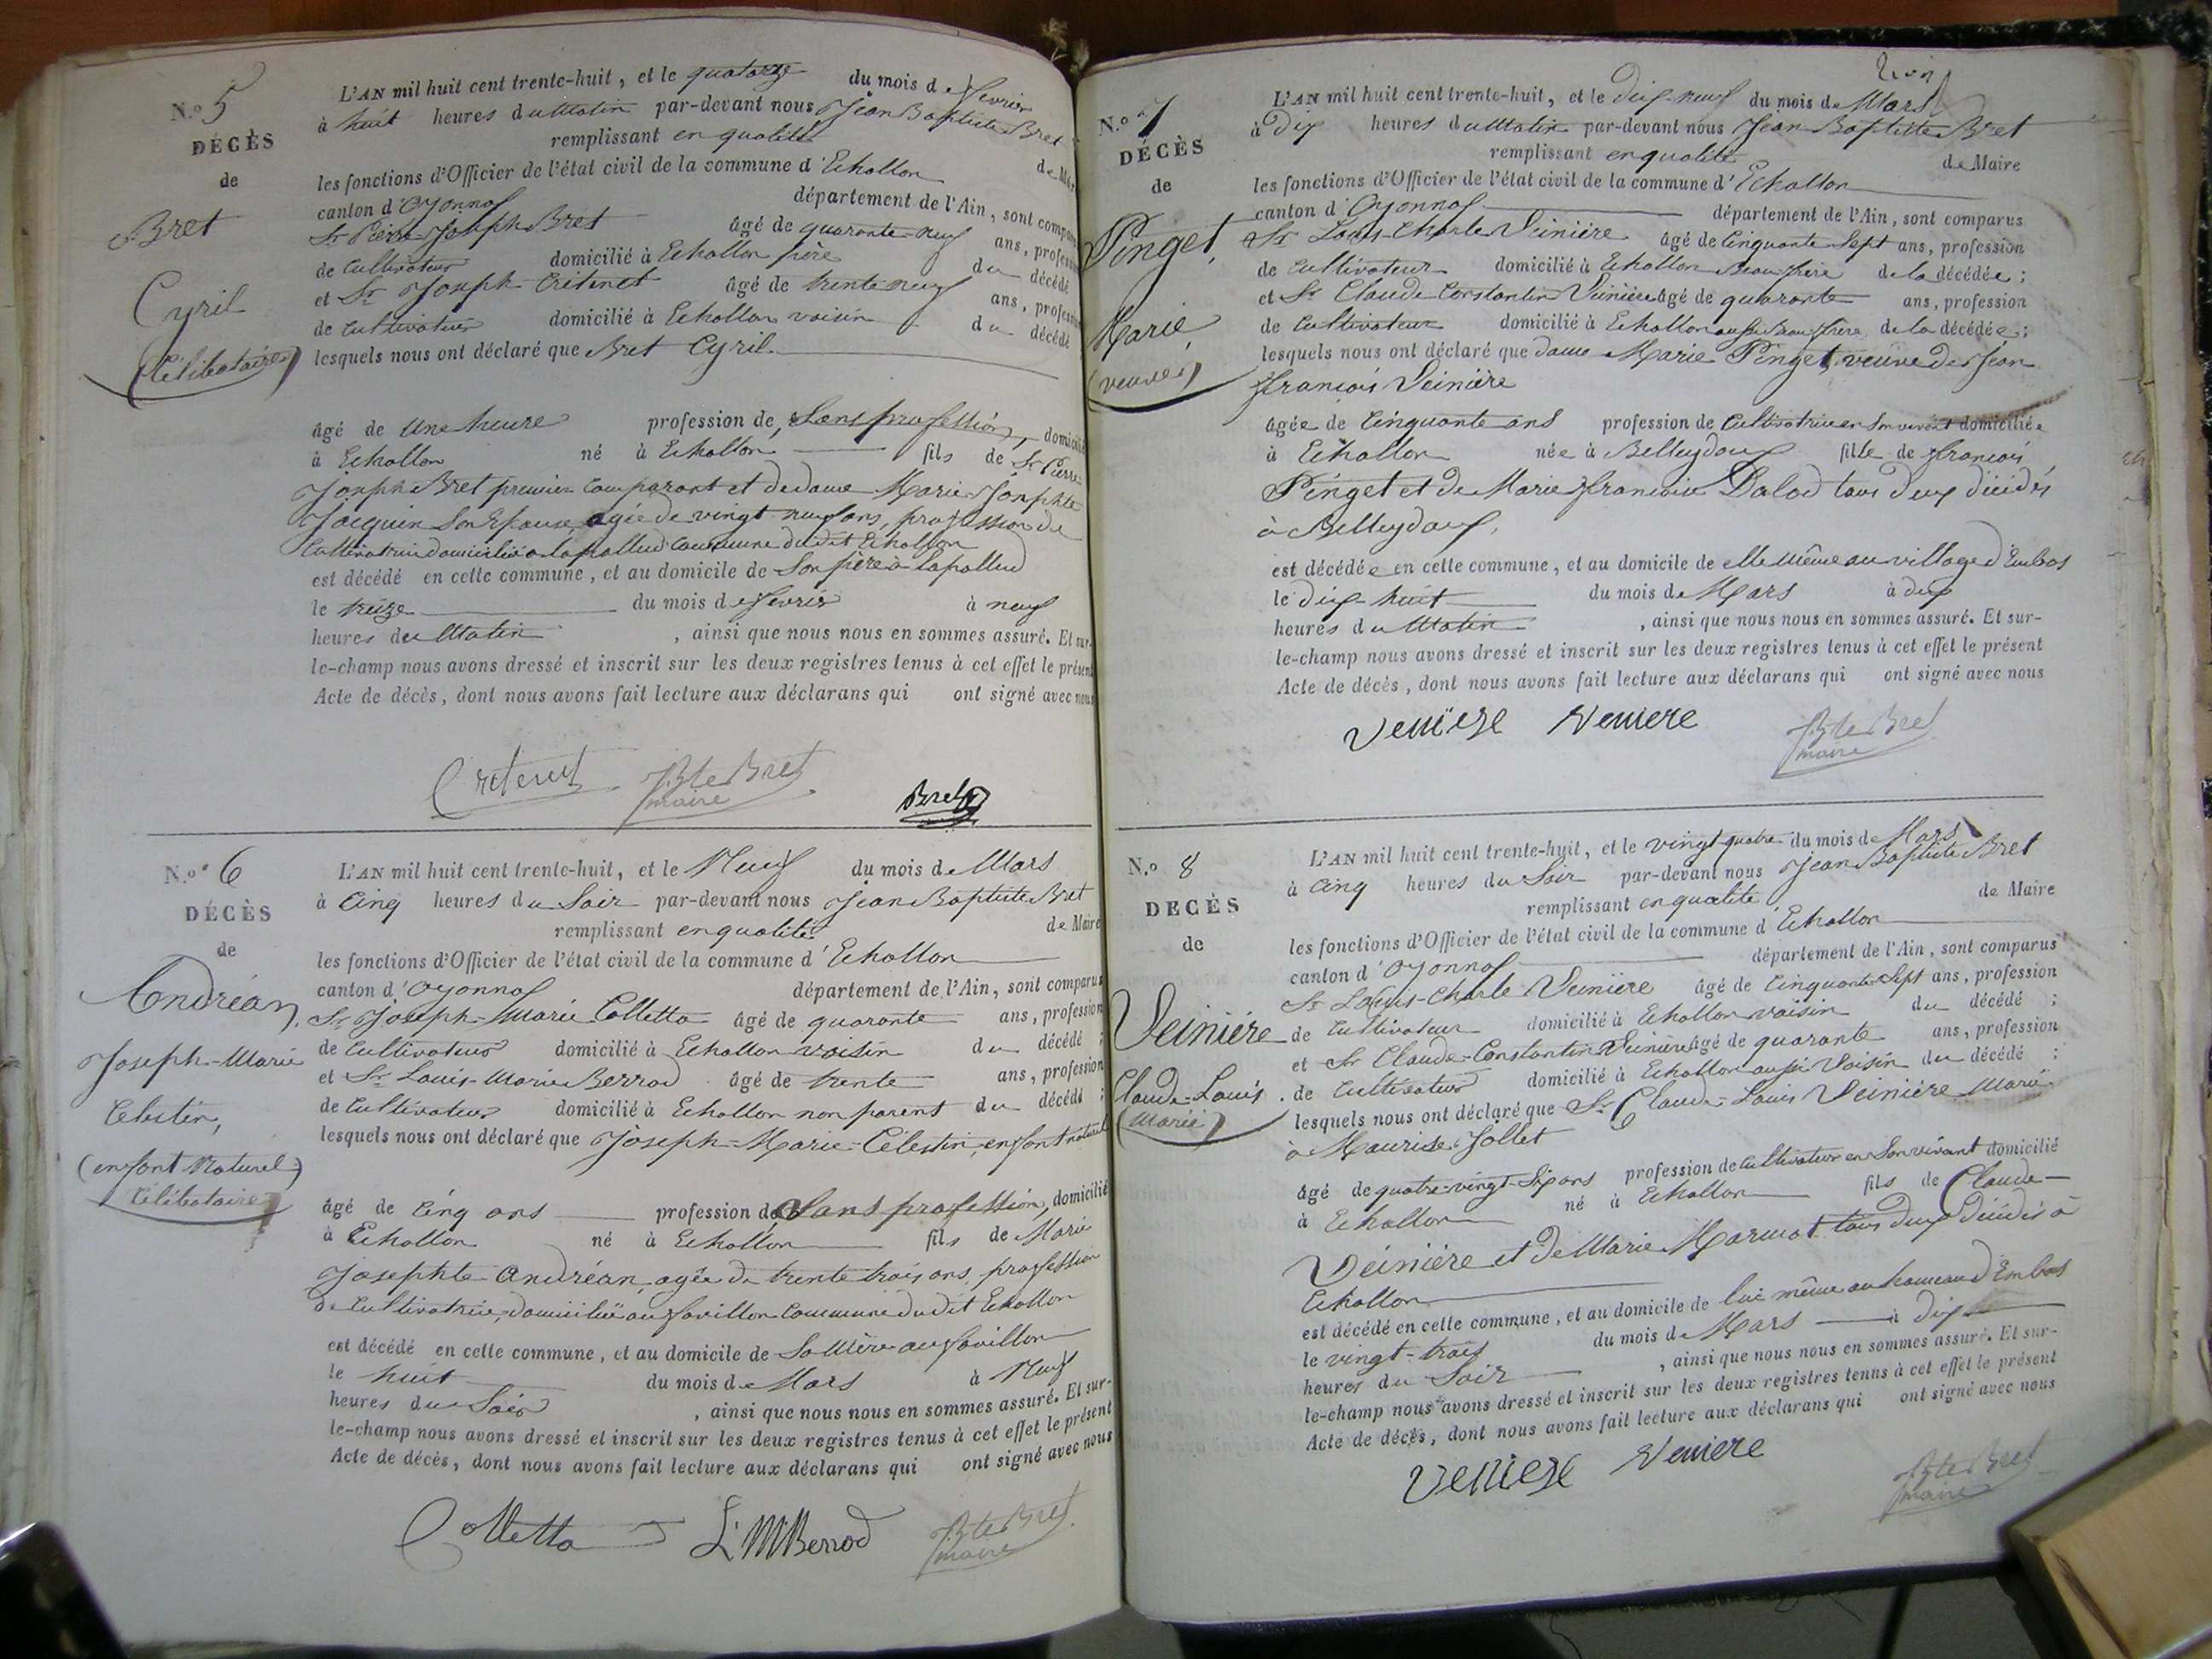 N.º 5
DÉCÈS
de
Bret
Cyril
(Célibataire)
L'AN mil huit cent trente-huit, et le quatorze du mois de fevrier
à huit heures du Matin par-devant nous Jean Baptiste Bret
remplissant en qualité de Mai
les fonctions d'Officier de l'état civil de la commune d'Echallon
canton d'Oyonnax département de l'Ain, sont compa
Sr Pierre-Joseph Bret âgé de quarante-neuf ans, profess
de Cultivateur domicilié à Echallon père du décédé
et Sr Joseph Critenet âgé de trente neuf ans, profess
de Cultivateur domicilié à Echallon voisin du décédé
lesquels nous ont déclaré que Bret Cyril
âgé de Une heure profession de Sans profession, domicilié
à Echallon né à Echallon fils de Sr Pierre
Joseph Bret premier Comparant et de dame Marie Josephte
Jacquin Son Epouse, agée de vingt neuf ans, profession de
Cultivatrice domiciliée à lapallud Commune du dit Echallon
est décédé en cette commune, et au domicile de Son père à lapallud
le treize du mois de fevrier à neuf
heures du Matin, ainsi que nous nous en sommes assuré. Et sur-
le-champ nous avons dressé et inscrit sur les deux registres tenus à cet effet le présent
Acte de décès, dont nous avons fait lecture aux déclarans qui ont signé avec nous
Critenet JBte Bret Bret
maire
N.º 6
DÉCÈS
de
Andréan,
Joseph-Marie
Célestin,
(enfant Naturel)
Célibataire
L'AN mil huit cent trente-huit, et le Neuf du mois de Mars
à Cinq heures du Soir par-devant nous Jean Baptiste Bret
remplissant en qualité de Maire
les fonctions d'Officier de l'état civil de la commune d'Echallon
canton d'Oyonnax département de l'Ain, sont comparus
Sr Joseph-Marie Colletta âgé de quarante ans, profession
de Cultivateur domicilié à Echallon voisin du décédé ;
et Sr Louis-Marie Berrod âgé de trente ans, profession
de Cultivateur domicilié à Echallon non parent du décédé ;
lesquels nous ont déclaré que Joseph-Marie-Célestin, enfant naturel
âgé de Cinq ans profession de Sans profession, domicilié
à Echallon né à Echallon fils de Marie
Josephte Andréan, agée de trente trois ans, profession
de Cultivatrice, domiciliée au favillon Commune du dit Echallon
est décédé en cette commune, et au domicile de Sa Mère au favillon
le huit du mois de Mars à Neuf
heures du Soir, ainsi que nous nous en sommes assuré. Et sur-
le-champ nous avons dressé et inscrit sur les deux registres tenus à cet effet le présent
Acte de décès, dont nous avons fait lecture aux déclarans qui ont signé avec nous
Colletta L. M. Berrod JBte Bret
maire
N.º 7
DÉCÈS
de
Pinget,
Marie,
(veuve)
L'AN mil huit cent trente-huit, et le dix-neuf du mois de Mars
à Dix heures du Matin par-devant nous Jean Baptiste Bret
remplissant en qualité de Maire
les fonctions d'Officier de l'état civil de la commune d'Echallon
canton d'Oyonnax département de l'Ain, sont comparus
Sr Louis-Charle Veinière âgé de Cinquante-Sept ans, profession
de Cultivateur domicilié à Echallon Beau frère de la décédée ;
et Sr Claude Constantin Veinière âgé de quarante ans, profession
de Cultivateur domicilié à Echallon aussi Beau frère de la décédée ;
lesquels nous ont déclaré que dame Marie Pinget, veuve de Jean
françois Veinière
âgée de Cinquante ans profession de Cultivatrice en Son vivant domiciliée
à Echallon née à Belleydoux fille de françois
Pinget et de Marie françoise Dalod tous deux décédés
à Belleydoux,
est décédée en cette commune, et au domicile de elle même au village d'Embos
le dix-huit du mois de Mars à dix
heures du Matin, ainsi que nous nous en sommes assuré. Et sur-
le-champ nous avons dressé et inscrit sur les deux registres tenus à cet effet le présent
Acte de décès, dont nous avons fait lecture aux déclarans qui ont signé avec nous
Veniere Veniere JBte Bret
maire
N.º 8
DECÈS
de
Veinière
Claude-Louis.
(Marié)
L'AN mil huit cent trente-huit, et le vingt quatre du mois de Mars
à Cinq heures du Soir par-devant nous Jean Baptiste Bret
remplissant en qualité de Maire
les fonctions d'Officier de l'état civil de la commune d'Echallon
canton d'Oyonnax département de l'Ain, sont comparus
Sr Louis-Charle Veinière âgé de Cinquante-Sept ans, profession
de Cultivateur domicilié à Echallon voisin du décédé ;
et Sr Claude-Constantin Veinière âgé de quarante ans, profession
de Cultivateur domicilié à Echallon aussi Voisin du décédé ;
lesquels nous ont déclaré que Sr Claude-Louis Veinière Marié
à Maurise Jollet
âgé de quatre-vingt-Six ans profession de Cultivateur en Son vivant domicilié
à Echallon né à Echallon fils de Claude
Veinière et de Marie Marmot tous deux décédés à
Echallon
est décédé en cette commune, et au domicile de lui même au hameau d'Embos
le vingt-trois du mois de Mars à dix
heures du Soir, ainsi que nous nous en sommes assuré. Et sur-
le-champ nous avons dressé et inscrit sur les deux registres tenus à cet effet le présent
Acte de décès, dont nous avons fait lecture aux déclarans qui ont signé avec nous
Veniere Veniere JBte Bret
maire